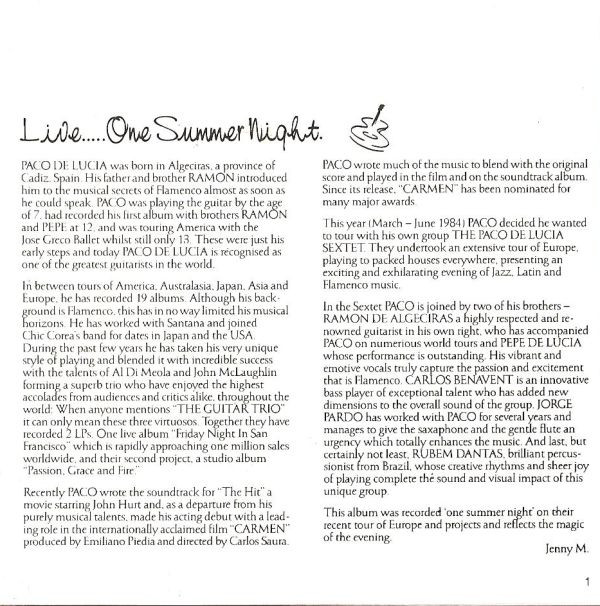 Live.....One Summer Night.
PACO DE LUCIA was born in Algeciras, a province of
Cadiz, Spain. His father and brother RAMON introduced
him to the musical secrets of Flamenco almost as soon as
he could speak. PACO was playing the guitar by the age
of 7, had recorded his first album with brothers RAMON
and PEPE at 12, and was touring America with the
Jose Greco Ballet whilst still only 13. These were just his
early steps and today PACO DE LUCIA is recognised as
one of the greatest guitarists in the world.
In between tours of America, Australasia, Japan, Asia and
Europe, he has recorded 19 albums. Although his back-
ground is Flamenco, this has in no way limited his musical
horizons. He has worked with Santana and joined
Chic Corea's band for dates in Japan and the USA.
During the past few years he has taken his very unique
style of playing and blended it with incredible success
with the talents of Al Di Meola and John McLaughlin
forming a superb trio who have enjoyed the highest
accolades from audiences and critics alike, throughout the
world: When anyone mentions "THE GUITAR TRIO"
it can only mean these three virtuosos. Together they have
recorded 2 LPs. One live album "Friday Night In San
Francisco" which is rapidly approaching one million sales
worldwide, and their second project, a studio album
"Passion, Grace and Fire."
Recently PACO wrote the soundtrack for "The Hit" a
movie starring John Hurt and, as a departure from his
purely musical talents, made his acting debut with a lead-
ing role in the internationally acclaimed film "CARMEN"
produced by Emiliano Piedia and directed by Carlos Saura.
PACO wrote much of the music to blend with the original
score and played in the film and on the soundtrack album.
Since its release, "CARMEN" has been nominated for
many major awards.
This year (March – June 1984) PACO decided he wanted
to tour with his own group THE PACO DE LUCIA
SEXTET. They undertook an extensive tour of Europe,
playing to packed houses everywhere, presenting an
exciting and exhilarating evening of Jazz, Latin and
Flamenco music.
In the Sextet PACO is joined by two of his brothers –
RAMON DE ALGECIRAS a highly respected and re-
nowned guitarist in his own right, who has accompanied
PACO on numerous world tours and PEPE DE LUCIA
whose performance is outstanding. His vibrant and
emotive vocals truly capture the passion and excitement
that is Flamenco. CARLOS BENAVENT is an innovative
bass player of exceptional talent who has added new
dimensions to the overall sound of the group. JORGE
PARDO has worked with PACO for several years and
manages to give the saxaphone and the gentle flute an
urgency which totally enhances the music. And last, but
certainly not least, RUBEM DANTAS, brilliant percus-
sionist from Brazil, whose creative rhythms and sheer joy
of playing complete the sound and visual impact of this
unique group.
This album was recorded 'one summer night' on their
recent tour of Europe and projects and reflects the magic
of the evening.
Jenny M.
1